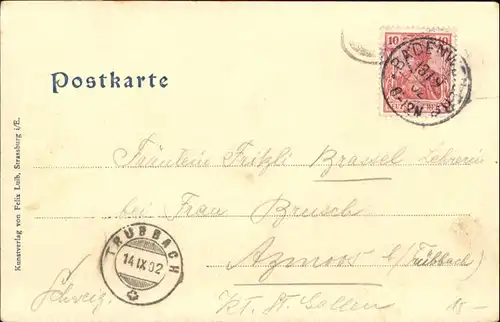 Postkarte
10 10
BADENW
13/9
02
TRÜBBACH
14 IX 02
Fräulein Fritzli Brassel Lehrerin
bei Frau Brusch
Azmoos b/Trübbach)
Schweiz.
Kt. St. Gallen
Kunstverlag von Felix Luib, Strassburg i/E.